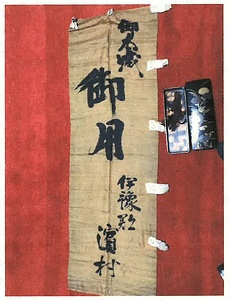 御大蔵
御用
伊豫
濱村